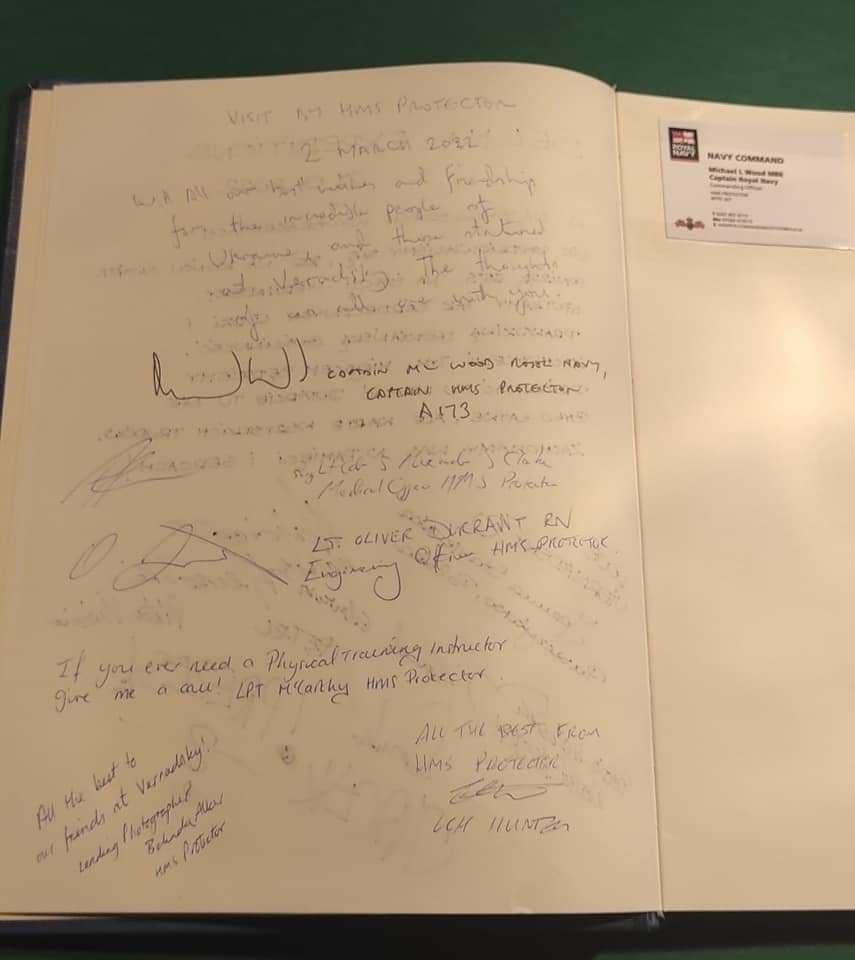 VISIT BY HMS PROTECTOR
2 MARCH 2022
With all our best wishes and friendship
for the incredible people of
Ukraine, and those stationed
at Vernadsky. The thoughts
of us all are with you.
CAPTAIN M WOOD ROYAL NAVY,
CAPTAIN HMS PROTECTOR
A173
Medical Officer HMS Protector
LT. OLIVER DURRANT RN
Engineering Officer HMS PROTECTOR
If you ever need a Physical Training Instructor
give me a call! LPT McCarthy HMS Protector
ALL THE BEST FROM
HMS PROTECTOR
LCH HUNTER
All the best to
our friends at Vernadsky!
Leading Photographer
Belinda Alker
HMS Protector
ROYAL NAVY
NAVY COMMAND
Michael L Wood MBE
Captain Royal Navy
Commanding Officer
HMS PROTECTOR